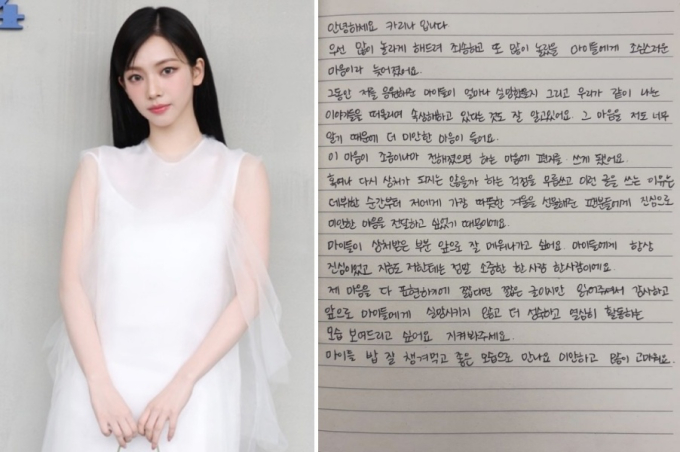 안녕하세요 카리나 입니다
우선 많이 놀라게 해드려 죄송하고 또 많이 놀랐을 마이들에게 조심스러운
마음이라 늦어졌어요.
그동안 저를 응원해준 마이들이 얼마나 실망했을지 그리고 우리가 같이 나눈
이야기들을 떠올리며 속상해하고 있다는 것도 잘 알고있어요. 그 마음을 저도 너무
알기 때문에 더 미안한 마음이 들어요.
이 마음이 조금이나마 전해졌으면 하는 마음에 편지를 쓰게 됐어요.
혹여나 다시 상처가 되지는 않을까 하는 걱정을 무릅쓰고 이런 글을 쓰는 이유는
데뷔한 순간부터 저에게 가장 따뜻한 겨울을 선물해준 팬분들에게 진심으로
미안한 마음을 전달하고 싶었기 때문이에요.
마이들이 상처받은 부분 앞으로 잘 메워나가고 싶어요. 마이들에게 항상
진심이었고 지금도 저한테는 정말 소중한 한사람 한사람이에요.
제 마음을 다 표현하기에 짧다면 짧은 글이지만 읽어주셔서 감사하고
앞으로 마이들에게 실망시키지 않고 더 성숙하고 열심히 활동하는
모습 보여드리고 싶어요 지켜봐주세요.
마이들 밥 잘 챙겨먹고 좋은 모습으로 만나요 미안하고 많이 고마워요.